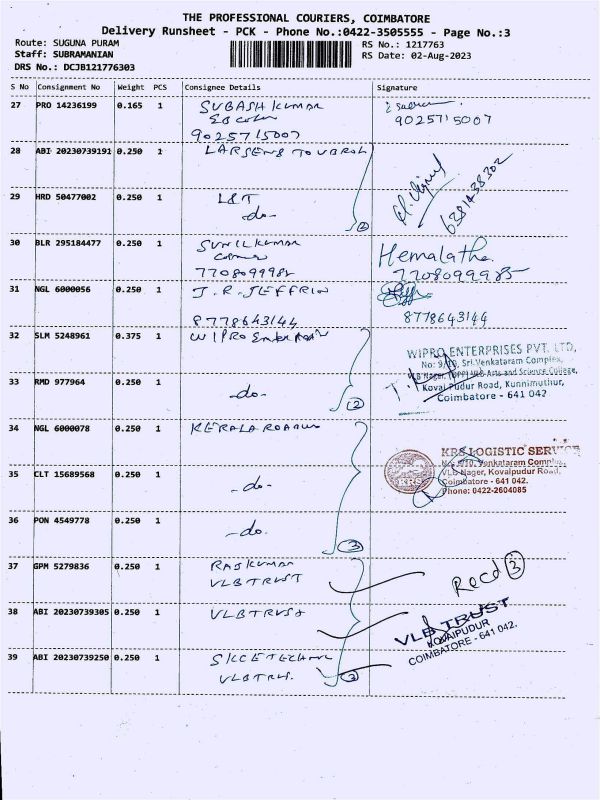 THE PROFESSIONAL COURIERS, COIMBATORE
Delivery Runsheet - PCK - Phone No.:0422-3505555 - Page No.:3
Route: SUGUNA PURAM
RS No.: 1217763
Staff: SUBRAMANIAN
RS Date: 02-Aug-2023
DRS No.: DCJB121776303
S No Consignment No Weight PCS Consignee Details Signature
27 PRO 14236199 0.165 1 SUBASH KUMAR
9025715007
9025715007
28 ABI 20230739191 0.250 1 LARSENS TOUBROL
29 HRD 50477002 0.250 1 L&T
-do- 2
6381438302
30 BLR 295184477 0.250 1 SUNILKUMAR Hemalatha
7708099985
31 NGL 6000056 0.250 1 J.R.JEFFRIN
8778643144 8778643144
32 SLM 5248961 0.375 1 WIPRO
WIPRO ENTERPRISES PVT. LTD,
No: 9/10, Sri Venkataram Complex,
VLB Nagar, (OPP) VLB Arts and Science College,
Kovai Pudur Road, Kunnimuthur,
Coimbatore - 641 042
33 RMD 977964 0.250 1 -do- 2
34 NGL 6000078 0.250 1 KERALA ROADWAYS
KRS LOGISTIC SERVICE
9/10, Venkataram Complex,
VLB Nagar, Kovaipudur Road,
Coimbatore - 641 042.
Phone: 0422-2604085
KRS
35 CLT 15689568 0.250 1 -do-
36 PON 4549778 0.250 1 -do- 3
37 GPM 5279836 0.250 1 RAJKUMAR
VLBTRUST
Recd 3
38 ABI 20230739305 0.250 1 VLBTRUST
VLB TRUST
KOVAIPUDUR
COIMBATORE - 641 042.
39 ABI 20230739250 0.250 1
3